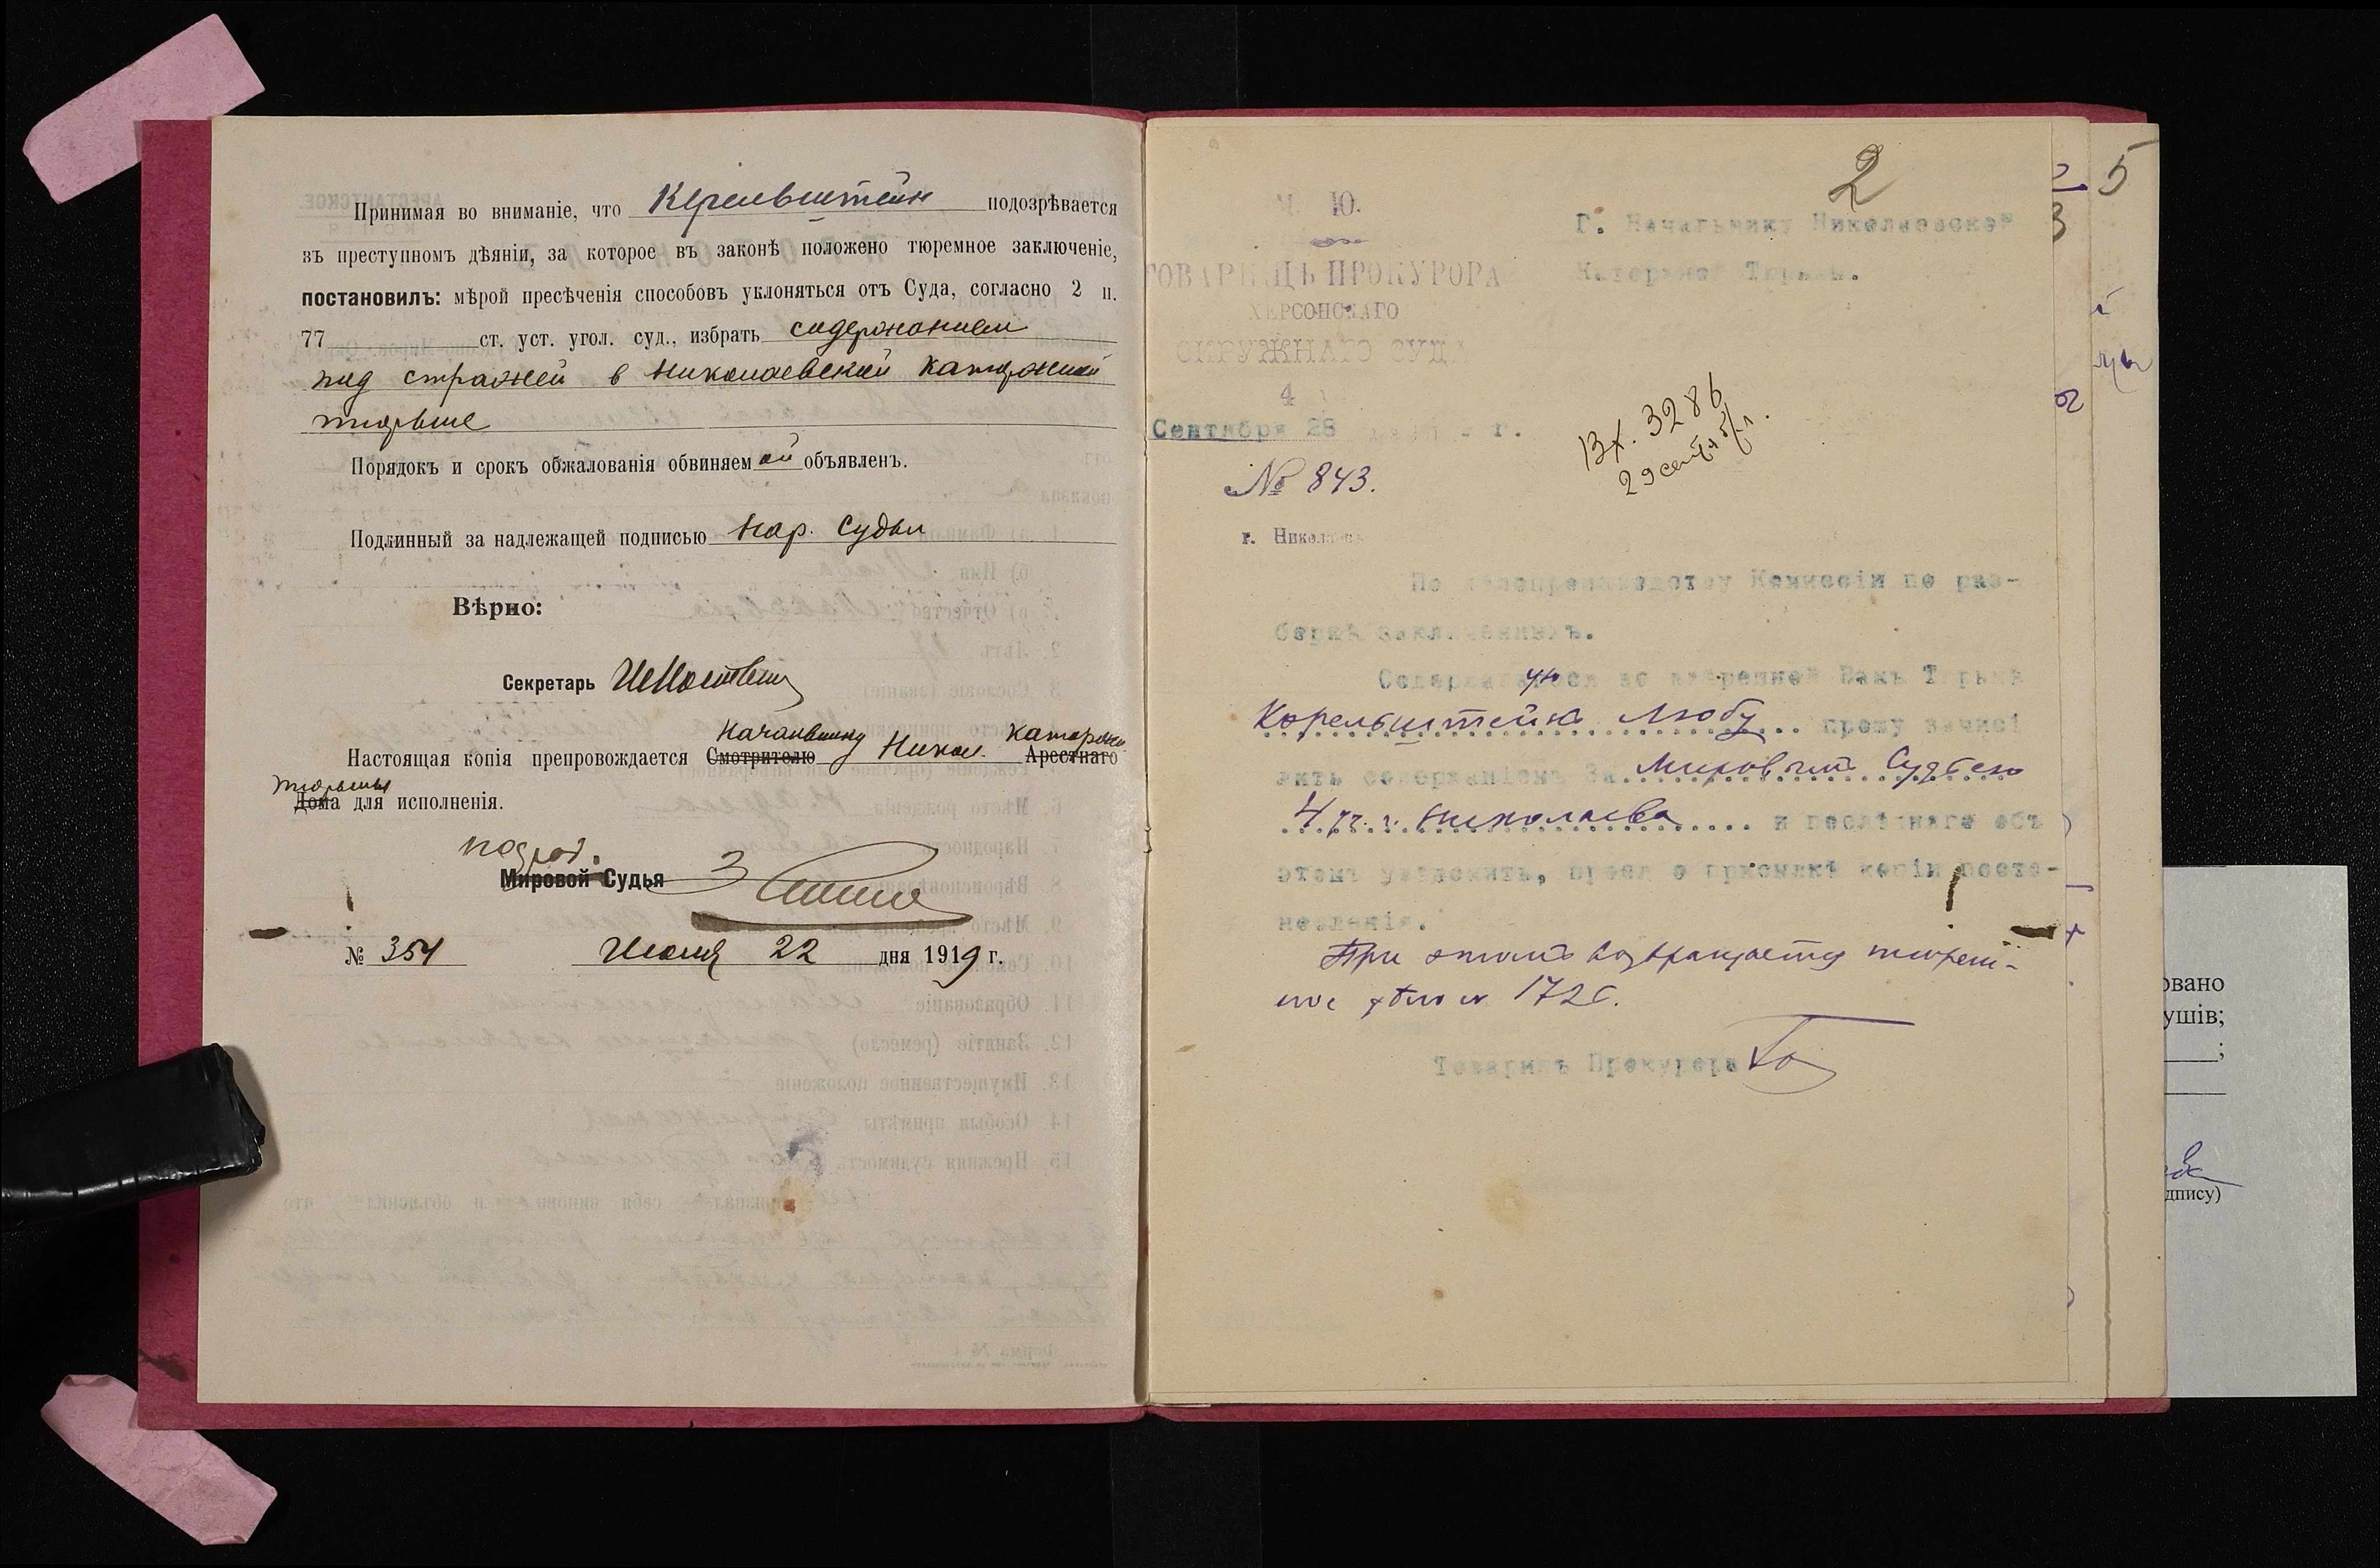 Принимая во вниманіе, что Керельштейн подозрѣвается
въ преступномъ дѣяніи, за которое въ законѣ положено тюремное заключеніе,
постановилъ: мѣрой пресѣченія способовъ уклоняться отъ Суда, согласно 2 п.
77 ст. уст. угол. суд., избрать содержанием
под стражей в Николаевской каторжной
тюрьме
Порядокъ и срокъ обжалованія обвиняемой объявленъ.
Подлинный за надлежащей подписью Нар. Судьи
Вѣрно:
Секретарь
Начальнику Никол. Каторжн.
Настоящая копія препровождается Смотрителю Арестнаго
тюрьмы
Дома для исполненія.
Мировой Судья
№ 354 Июля 22 дня 1919 г.
2
М. Ю.
ТОВАРИЩЪ ПРОКУРОРА
ХЕРСОНСКАГО
ОКРУЖНАГО СУДА
4
Сентября 28 г.
№ 843.
г. Николаевъ
Г. Начальнику Николаевской
Каторжной Тюрьмы.
Вх. 3286
29 сент.
По дѣлопроизводству Комиссіи по раз-
боркѣ заключенныхъ.
Содержащуюся во ввѣренной Вамъ Тюрьмѣ
Корельштейнъ Любу прошу зачис
лить содержаніемъ за Мировымъ Судьею
4 уч. г. Николаева и послѣдняго объ
этомъ увѣдомить, прося о присылкѣ копіи поста-
новленія.
При этомъ возвращается тюрем-
ное дѣло №
Товарищъ Прокурора
5
3
овано
ушів;
дпису)